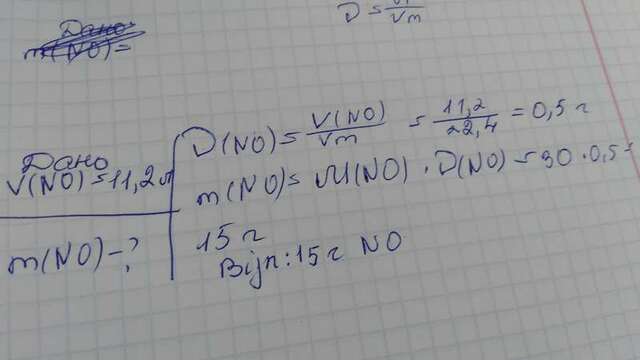 Дано
m(NO)=
ν = V/Vm
Дано
V(NO)=11,2 л
m(NO)-?
ν(NO) = V(NO)/Vm = 11,2/22,4 = 0,5 г
m(NO)= M(NO) · ν(NO) = 30 · 0,5 =
15 г
Відп: 15 г NO